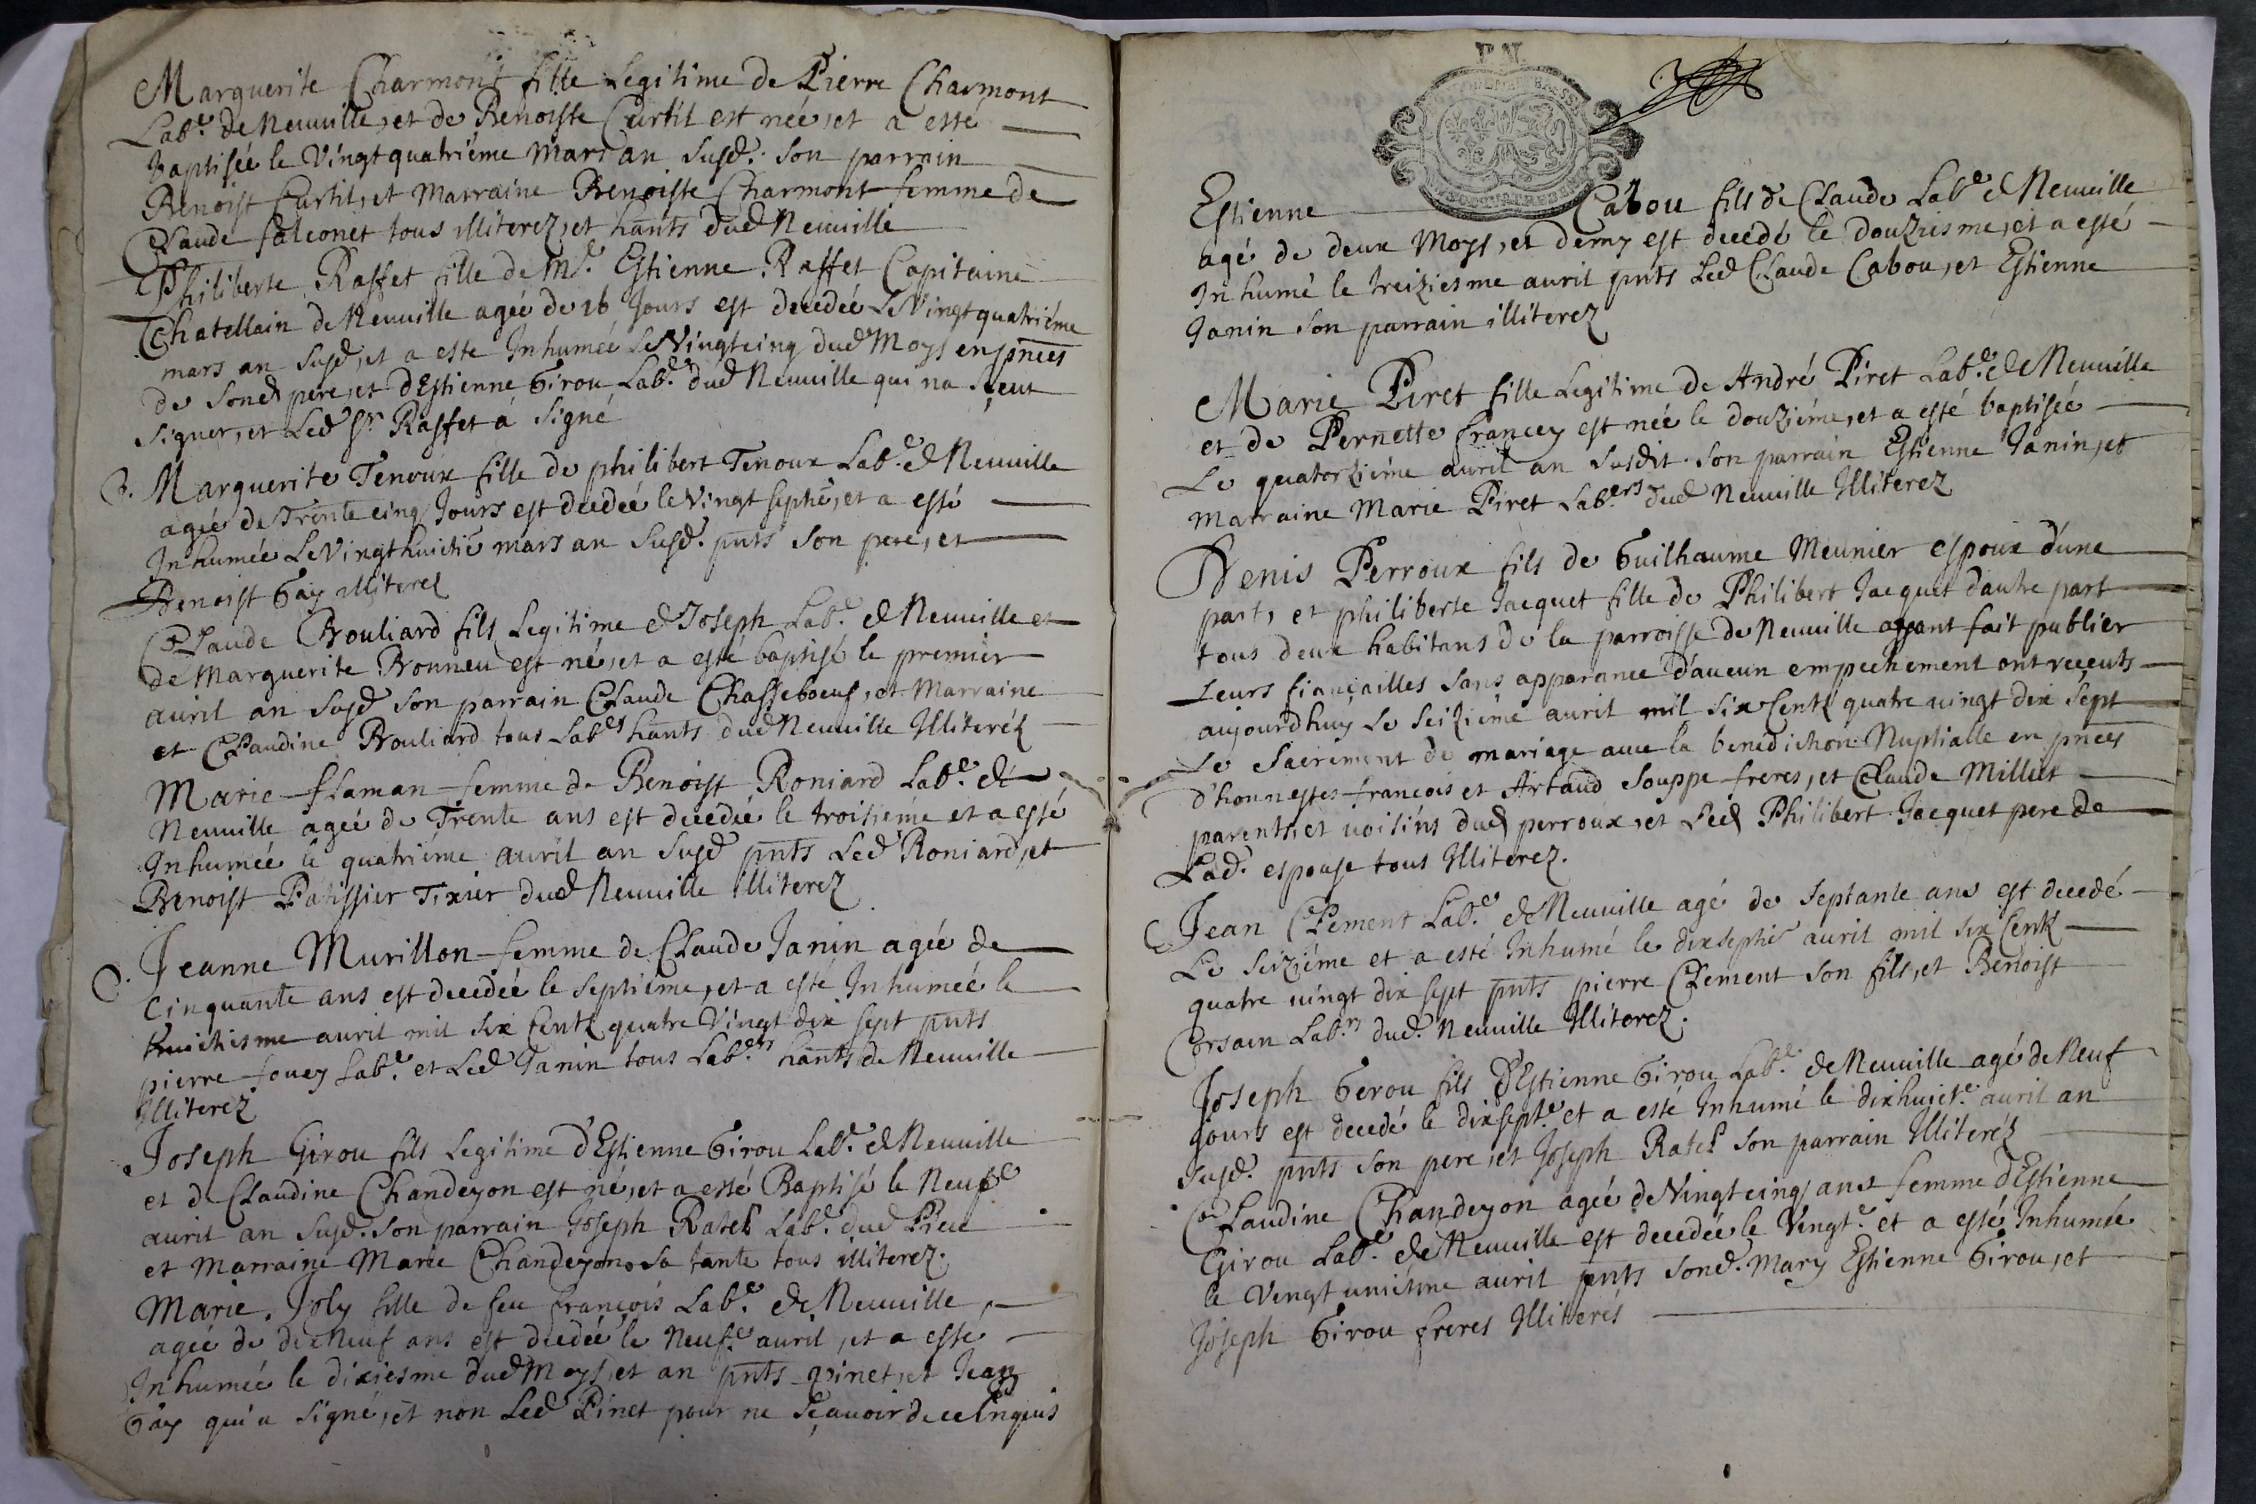 Marguerite Charmont fille Legitime de Pierre Charmont
Labr. de Neuuille, et de Benoiste Curtil est née, et a esté
Baptisée le Vingt quatriéme Mars an susd. son parrain
Benoist Curtil, et Marraine Benoiste Charmont femme de
Claude falconet tous illiterez, et hants dud Neuuille
Philiberte Raffet fille de Mr. Estienne Raffet Capitaine
Chatellain de Neuuille agée de 16 Jours est decedée Le Vingt quatriéme
mars an susd, et a este Inhumée Le Vingtcinq dud Moys en pnces
de sond pere, et d'Estienne Girou Labr. dud Neuuille qui na sceut
signer, et Led Sr Raffet a signé
Marguerite Tenoux fille de philibert Tenoux Labr. de Neuuille
agée de Trente cinq Jours est decedée le Vingt septie, et a esté
Inhumée Le Vingt huictie mars an susd. pnts son pere, et
Benoist Gay illiterez
Claude Brouliard fils Legitime de Joseph Labr. de Neuuille et
de Marguerite Bonneu est né, et a esté baptisé le premier
auril an susd son parrain Claude Chasseboeuf, et Marraine
et Claudine Brouliard tous Labrs hants dud Neuuille Illiteréz
Marie flaman femme de Benoist Roniard Labr. de
Neuuille agée de Trente ans est decedée le troisiéme et a esté
Inhumée le quatrieme auril an susd pnts Led Roniard, et
Benoist Patissier Tixier dud Neuuille illiterez
Jeanne Murillon femme de Claude Janin agée de
Cinquante ans est decedée le septiéme, et a esté Inhumée le
huictiesme auril mil six Centz quatre Vingt dix sept pnts
pierre fouey Labr. et Led Janin tous Labrs hants de Neuuille
Illiterez
Joseph Girou fils Legitime d'Estienne Girou Labr. de Neuuille
et de Claudine Chandeyon est né, et a esté Baptisé le Neufe
auril an susd. son parrain Joseph Ratel Labr. dud Lieu
et Marraine Marie Chandeyon sa tante tous illiterez.
Marie Joly fille de feu françois Labr. de Neuuille,
agée de dix Neuf ans est decedée le Neufe auril, et a esté
Inhumée le dixiesme dud Moys, et an pnts pinet, et Jean
Gay qui a signé, et non Led Pinet pour ne sçauoir de ce Enquis
Estienne Cabou fils de Claude Labr de Neuuille
agé de deux Moys, et demy est decedé le douziesme, et a esté
Inhumé le treiziesme auril pnts Led Claude Cabou, et Estienne
Janin son parrain illiterez
Marie Piret fille Legitime de André Piret Labr. de Neuuille
et de Pernette francey est née le douziéme, et a esté baptisée
Le quatorziéme auril an susdit. son parrain Estienne Janin, et
Marraine Marie Piret Labrs dud Neuuille Illiterez
Denis Perroux fils de Guilhaume Meunier espoux d'une
part, et philiberte Jacquet fille de Philibert Jacquet d'autre part
tous deux habitans de la parroisse de Neuuille ayant fait publier
Leurs fiançailles sans apparance d'aucun empechement ont receuts
aujourdhuy le seiziéme auril mil six Centz quatre uingt dix sept
Le sacrement de mariage auec la benediction Nuptialle en pnces
d'honnestes francois et Artaud Souppe freres, et Claude Millet
parents, et uoisins dud perroux, et Led Philibert Jacquet pere de
Lad. espouse tous Illiterez.
Jean Clement Labr. de Neuuille agé de septante ans est decedé
Le seiziéme et a esté Inhumé le dixseptie auril mil six Centz
quatre uingt dix sept pnts pierre Clement son fils, et Benoist
Corsain Labrs dud. Neuuille Illiterez.
Joseph Gerou fils d'Estienne Girou Labr. de Neuuille agé de Neuf
jours est decedé le dixsepte. et a esté Inhumé le dixhuicte. auril an
susd. pnts son pere, et Joseph Ratel son parrain Illiteréz
Claudine Chandeyon agée de Vingtcinq ans femme d'Estienne
Girou Labr. de Neuuille est decedée le Vingte. et a esté Inhumée
le Vingt uniéme auril pnts sond. Mary Estienne Girou, et
Joseph Girou freres Illiterés